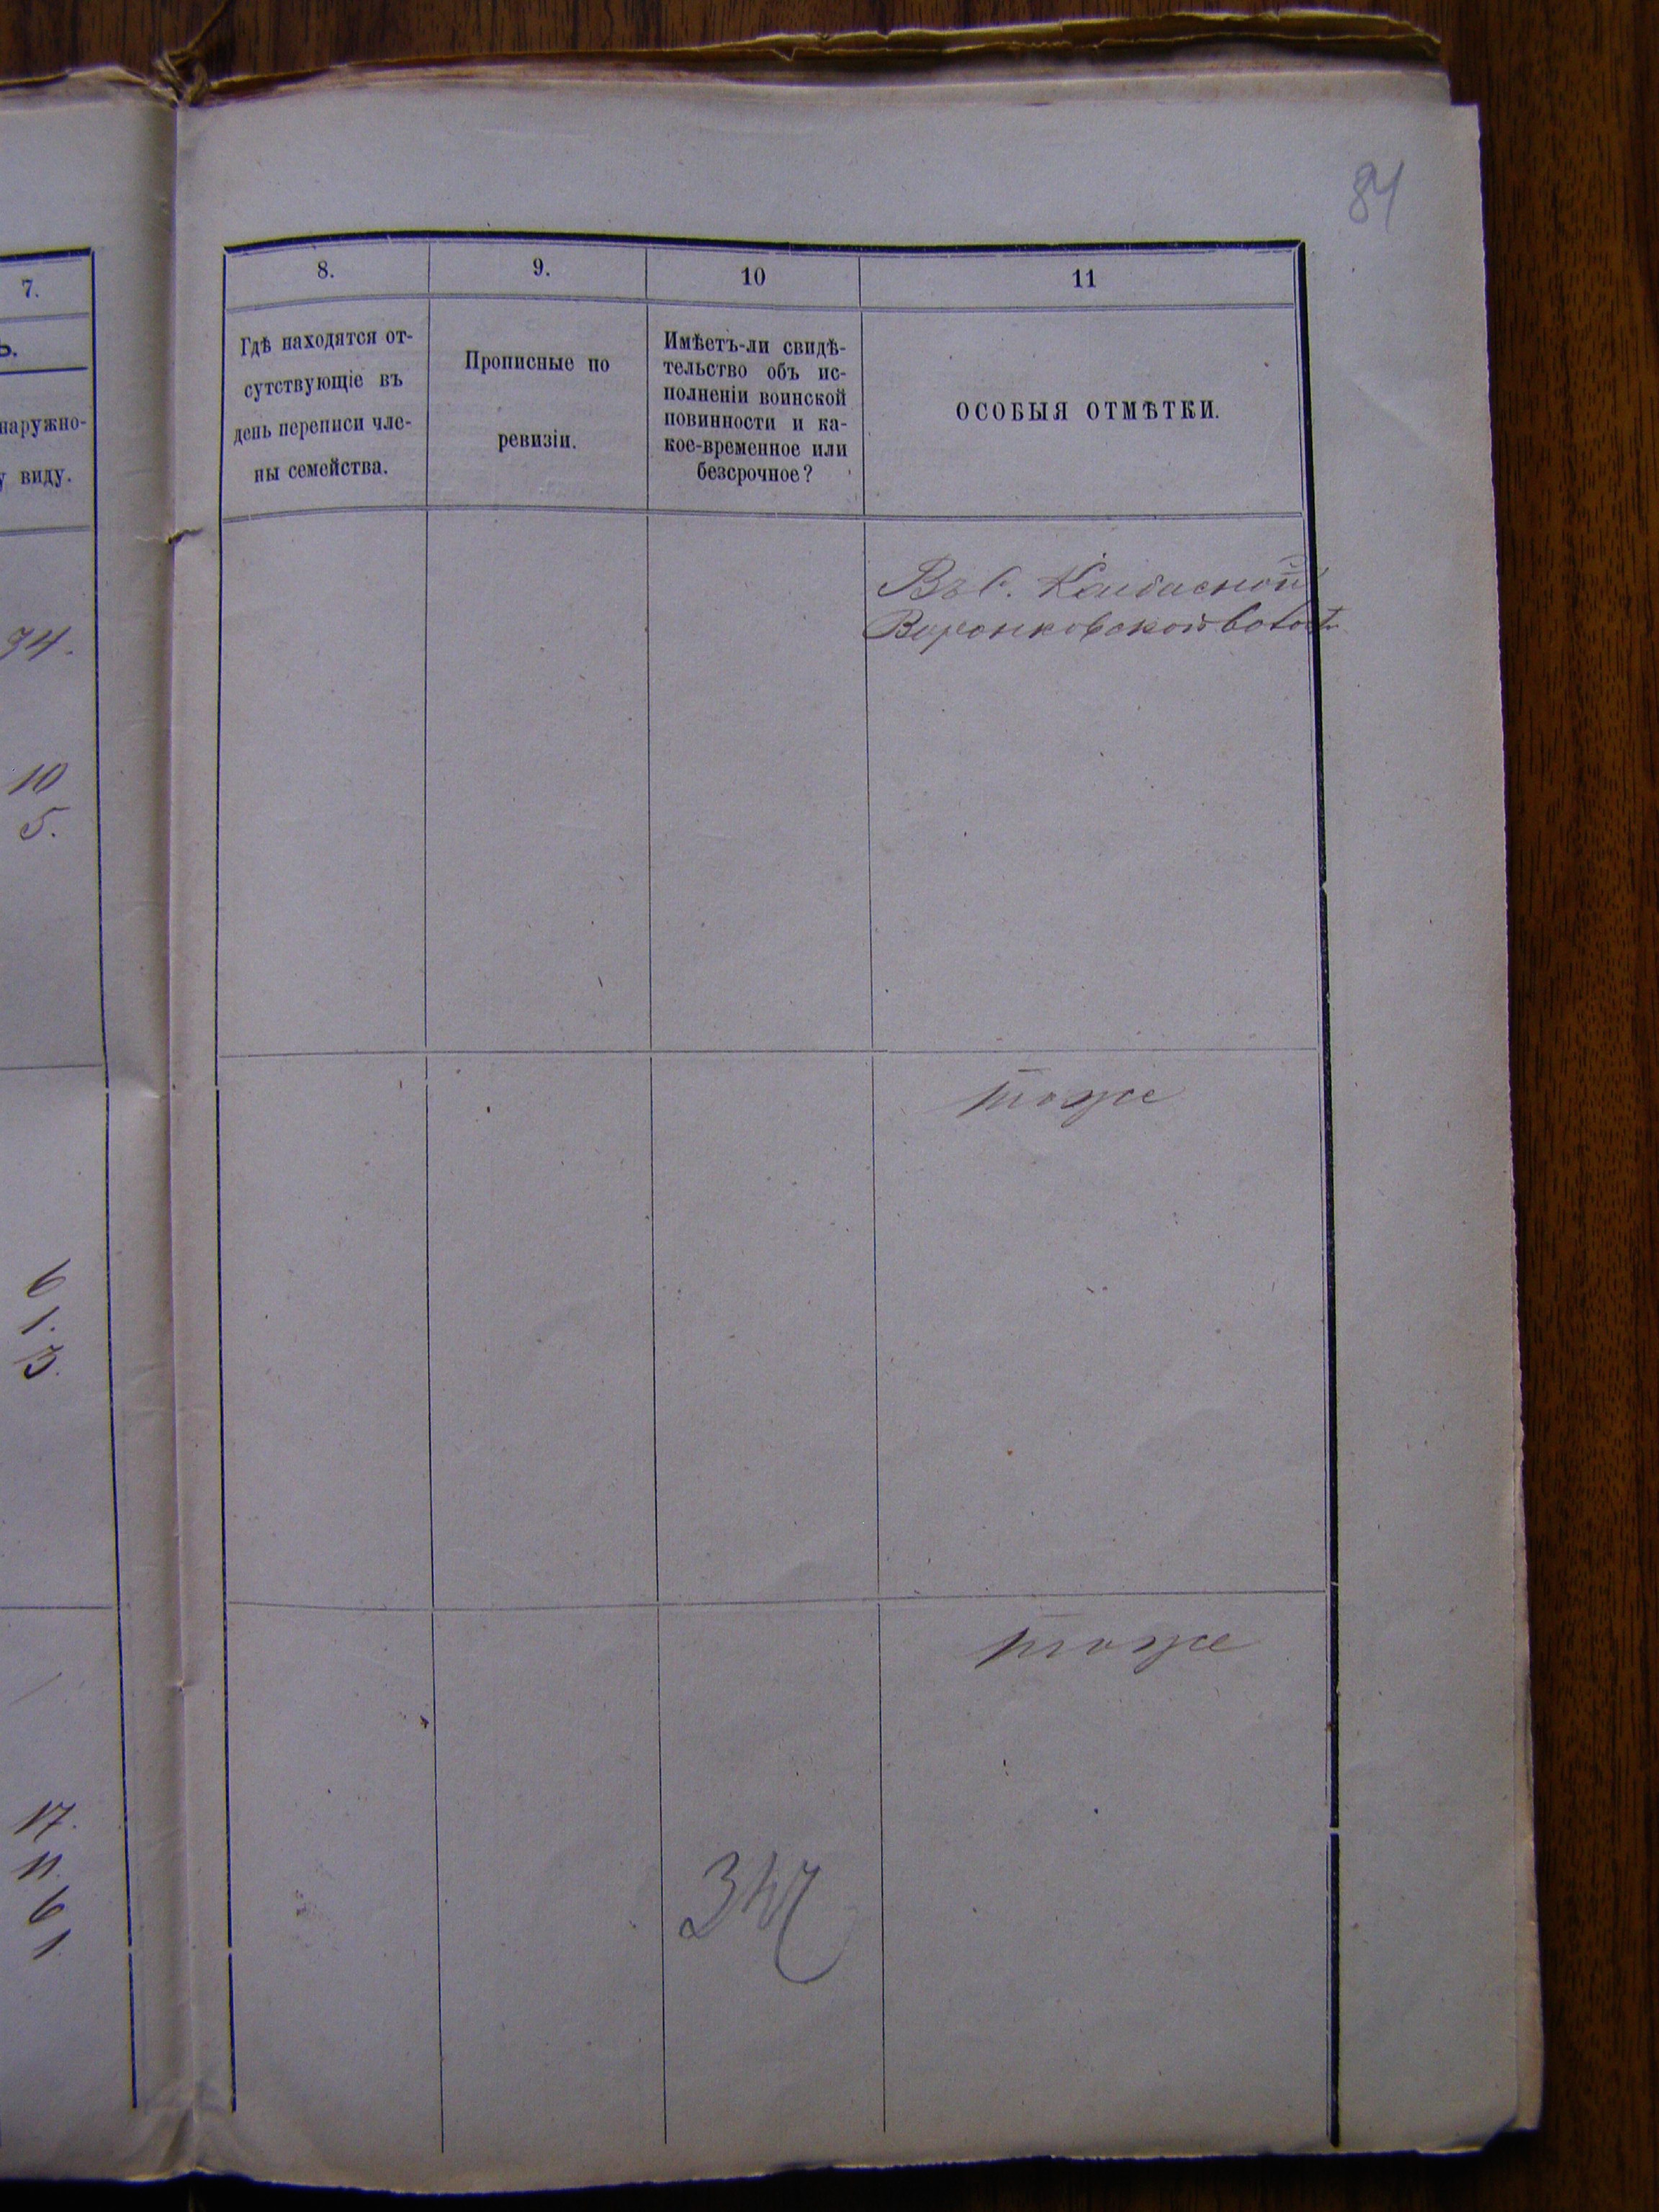 84
7.
Ъ.
наружно-
у виду.
34.
10
5.
6
1.
3.
17.
11.
6
1
8.
9.
10
11
Гдѣ находятся от-
сутствующіе въ
день переписи чле-
ны семейства.
Прописные по
ревизіи.
Имѣетъ-ли свидѣ-
тельство объ ис-
полненіи воинской
повинности и ка-
кое-временное или
безсрочное?
ОСОБЫЯ ОТМѢТКИ.
Въ с. Колбасной
Воронковской волост.
тоже
тоже